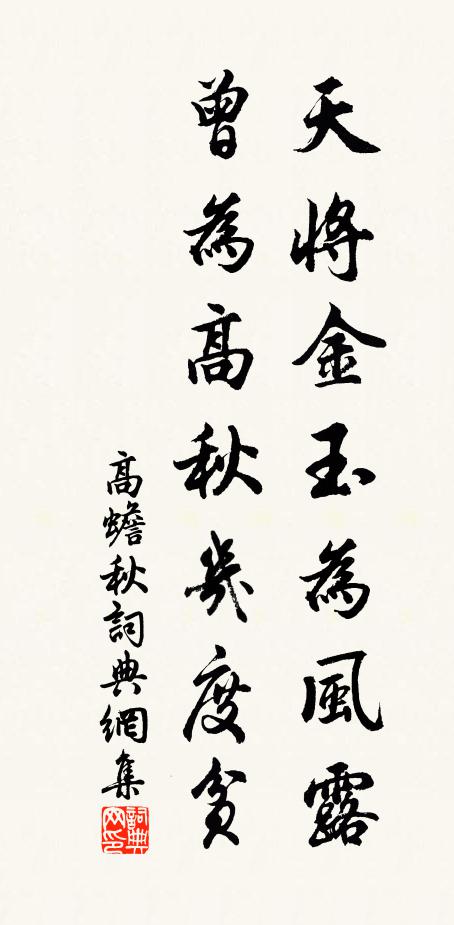 天將金玉為風露
曾為高秋幾度貧
高蟾秋詞典網集
詞典网印